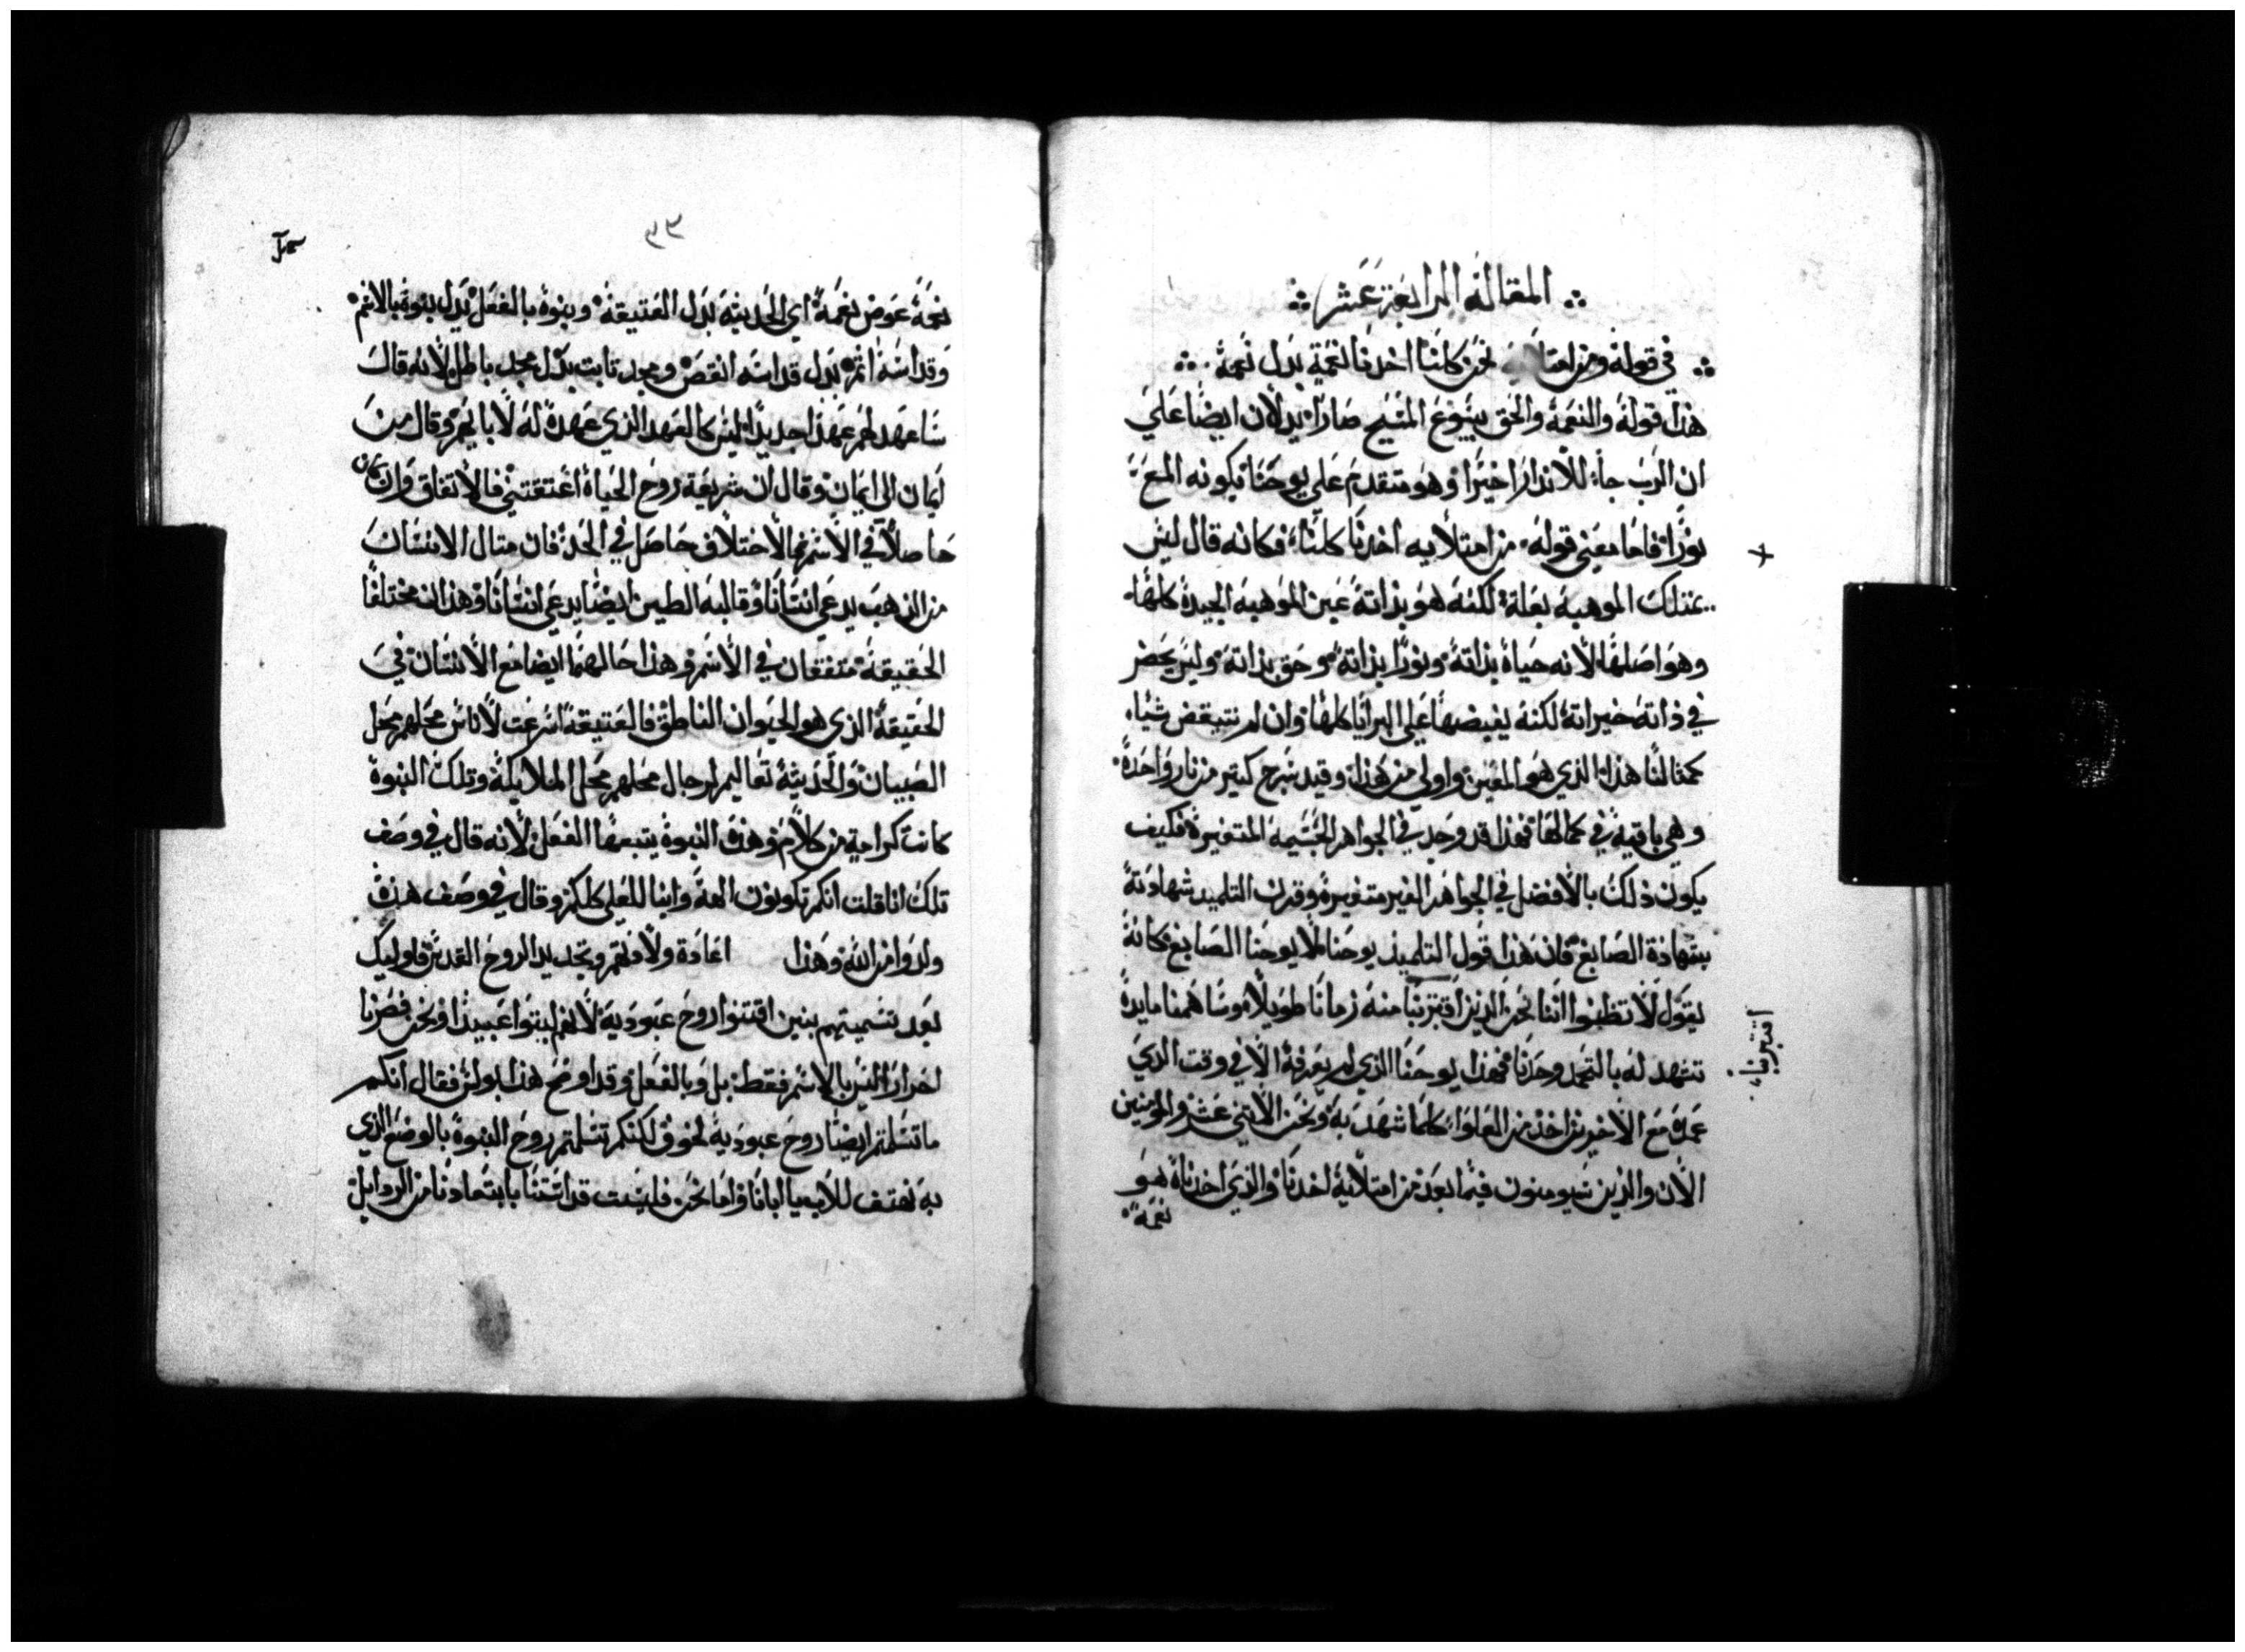 المقالة الرابعة عشر
في قوله ومن امتلا نحن كلنا اخدنا نعمة بدل نعمة
هدا قوله والنعمة والحق بيسوع المسيح صارا يدلان ايضا علي
ان الرب جا للاندار اخيرا وهو متقدم علي يوحنا بكونه المع
نورا فاما معني قوله من امتلايه اخدنا كلنا فكانه قال ليس
يمتلك الموهبة بعلة لكنه هو بداته عين المواهبه الجيدة كلها
وهو اصلها لانه حياة بداته ونورا بداته وحق بداته وليس يحصر
في داته خيراته لكنه يفيضها علي البرايا كلها وان لم تنتقص شيا
كمثالنا هدا الدي هو المعين واولي من هدا وقيد سرج كتير من نار واحدة
وهي باقية في كمالها فهدا قد وجد في الجواهر الجسيمة المتغيرة فكيف
يكون دلك بالافضل في الجواهر الغير متغيرة وقرن التلميد شهادته
بشهادة الصابغ فان هدا قول التلميد يوحنا لا يوحنا الصابغ فكانه
يقول لا تظنوا اننا نحن الدين اقتربنا منه زمانا طويلا وساهمنا مايدة
اقتربنا
نشهد له بالتمجد وحدنا فهدا يوحنا الدي لم يعرفه الا في وقت الدي
عمده مع الاخرين اخد من العلوا كلما شهد به ونحن الاتني عشر والمومنين
الان والدين سيومنون فيما بعد من امتلايه اخدنا والدي اخدناه هو
نعمة
٤٣
نعمة عوض نعمة اي الحديثة بدل العتيقة وبنوة بالفعل بدل بنوة بالاسم
وقداسة اتم بدل قداسة انقص ومجد تابت بدل مجد باطل لانه قال
ساعهد لهم عهدا جديدا ليس كالعهد الدي عهدة له لابايهم وقال من
ايمان الي ايمان وقال ان شريعة روح الحياة اعتقتني فالاتفاق وان كان
حاصلا في الاسم فالاختلاف حاصل في الحد فان متال الانسان
من الدهب يدعي انسانا وقالبه الطين ايضا يدعي انسانا وهدان مختلفا
الحقيقة متفقان في الاسم وهدا حالهما ايضا مع الانسان في
الحقيقة الدي هو الحيوان الناطق فالعتيقة اشرعت لاناس محلهم محل
الصبيان والحديثة تعاليم لرجال محلهم محل الملايكة وتلك البنوة
كانت كرامة من كلام وهده البنوة يتبعها الفعل لانه قال في وصف
تلك انا قلت انكم تكونون الهة وابنا للعلي كلكم وقال في وصف هده
ولدوا من الله وهدا اعادة ولادتهم وتجديد الروح القدس فاوليك
بعد تسميتهم بنين اقتنوا روح عبودية لانهم لبتوا عبيدا ونحن فصرنا
احرارا ليس بالاسم فقط بل وبالفعل وقد اوضح هدا بولس فقال انكم
ما تسلمتم ايضا روح عبودية لخوف لكنكم تسلمتم روح البنوة بالوضع الدي
به نهتف للاب يا ابانا واما نحن فليست قداستنا بابتعادنا من الردايل